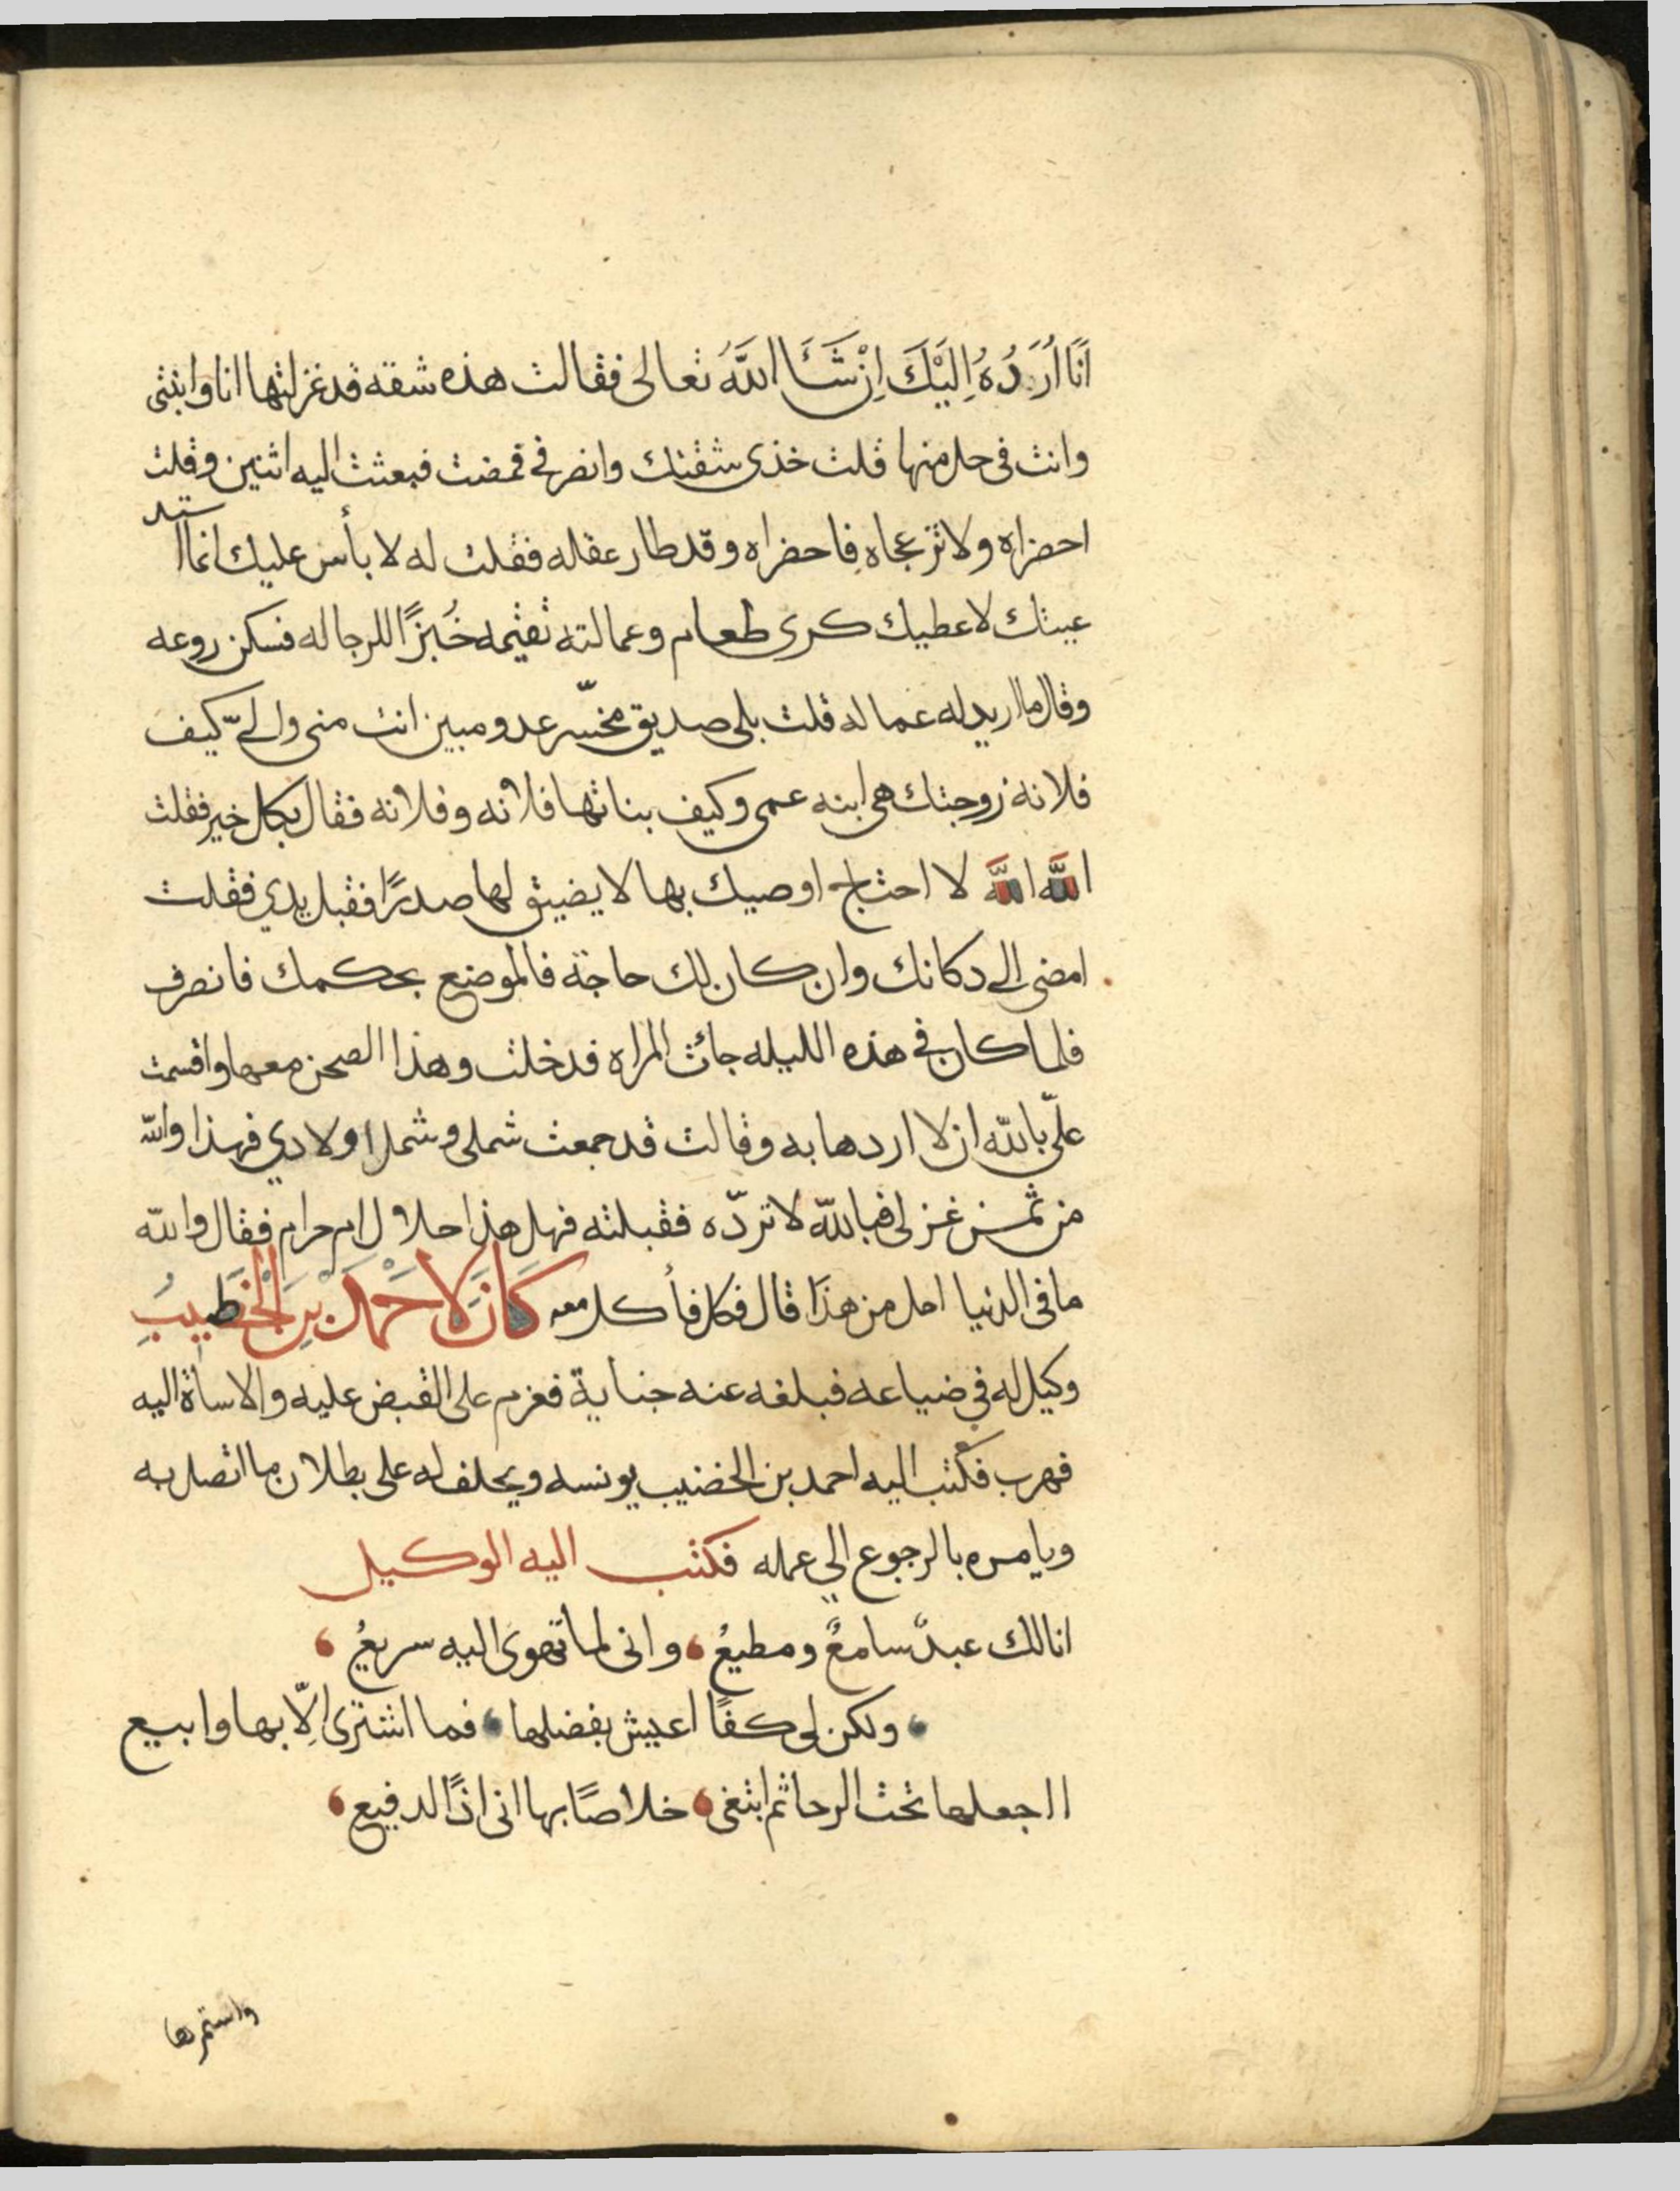 انًا اُرَدُهُ اِلَيْكَ اِنْ شَاَ اللَّهُ تعالى فقالت هذه شقه قد غزلتها انا وابنتى
وانت فى حل منها قلت خذى شقتك وانصرفى فمضت فبعثت اليه اثنين وقلت
احضراه ولا تزعجاه فاحضراه وقد طار عقله فقلت له لا بأس عليك انما استد
عيتك لاعطيك كرى طعام وعمالته تقيمه خُبزًا للرجاله فسكن روعه
وقال ما اريد له عماله قلت بلى صديق مخسّر عدو مبين انت منى والىّ كيف
فلانة زوجتك هى ابنه عمى وكيف بناتها فلانه وفلانه فقال بكل خير فقلت
اللَّه اللَّه لا احتاج اوصيك بها لا يضيق لها صدرًا فقبل يدي فقلت
امضى الى دكانك وان كان لك حاجة فالموضع بحكمك فانصرف
فلما كان فى هذه الليله جائت المراه فدخلت وهذا الصحن معها واقسمت
علىّ بالله ان لا اردها به وقالت قد جمعت شملى وشمل اولادي فهذا والله
من ثمن غزلى فبالله لا تردّه فقبلته فهل هذا حلال ام حرام فقال والله
ما فى الدنيا احل من هذَا قال فكل فأكل معه كَانَ لاَحْمَدَ بْنِ الْخَطيبُ
وكيل له في ضياعه فبلغه عنه جناية فعزم على القبض عليه والاساة اليه
فهرب فكتب اليه احمد بن الخضيب يونسه ويحلف له على بطلان ما اتصل به
ويامره بالرجوع الي عمله فكتب اليه الوكيل
انا لك عبدٌ سامعٌ ومطيعُ وانى لما تهوى اليه سريعُ
ولكن لى كفًا اعيش بفضلها فما اشترى اِلّا بها وابيع
ااجعلها تحت الرحا ثم ابتغى خلاصًا بها انى اذًا لدفيع
واستمرها